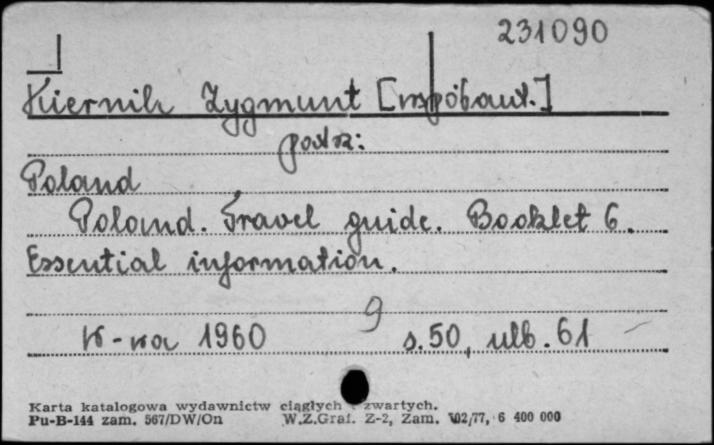 231090
Kiernik Zygmunt [współaut.]
patrz:
Poland
Poland. Travel guide. Booklet 6.
Essential information.
9
W-wa 1960 s. 50, ulb. 61
Karta katalogowa wydawnictw ciągłych i zwartych.
Pu-B-144 zam. 567/DW/On W.Z.Graf. Z-2, Zam. 102/77, 6 400 000